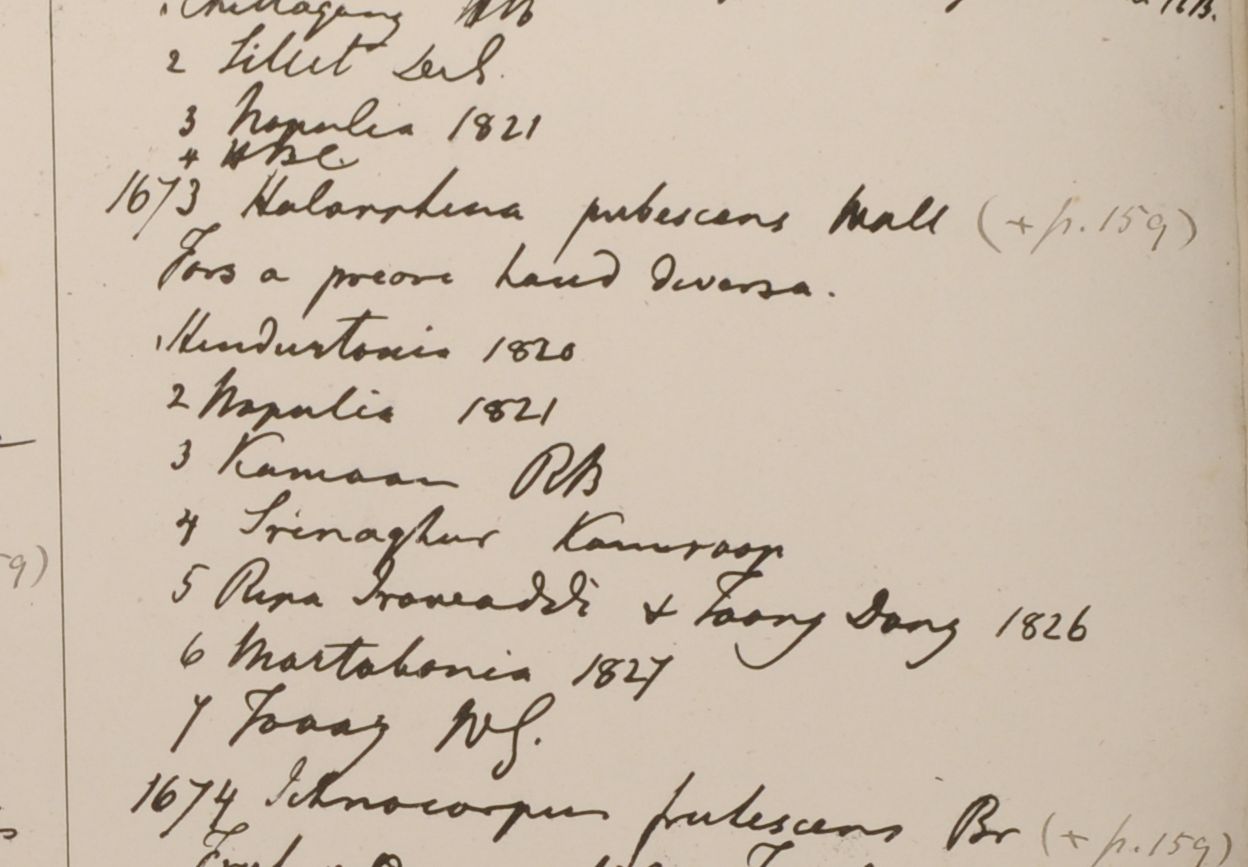 1 Chittagong HB
2 Sillet
3 Napalia 1821
4 HBC
1673 Holarrhena pubescens Wall (+ p. 159)
Fors a priore haud diversa.
1 Hindustania 1820
2 Napalia 1821
3 Kamaon RB
4 Srinaghur Kamroop
5 Ripa Irawaddi + Taong Dong 1826
6 Martabania 1827
7 Tavoy WG.
1674 Ichnocarpus frutescens Br (+ p. 159)